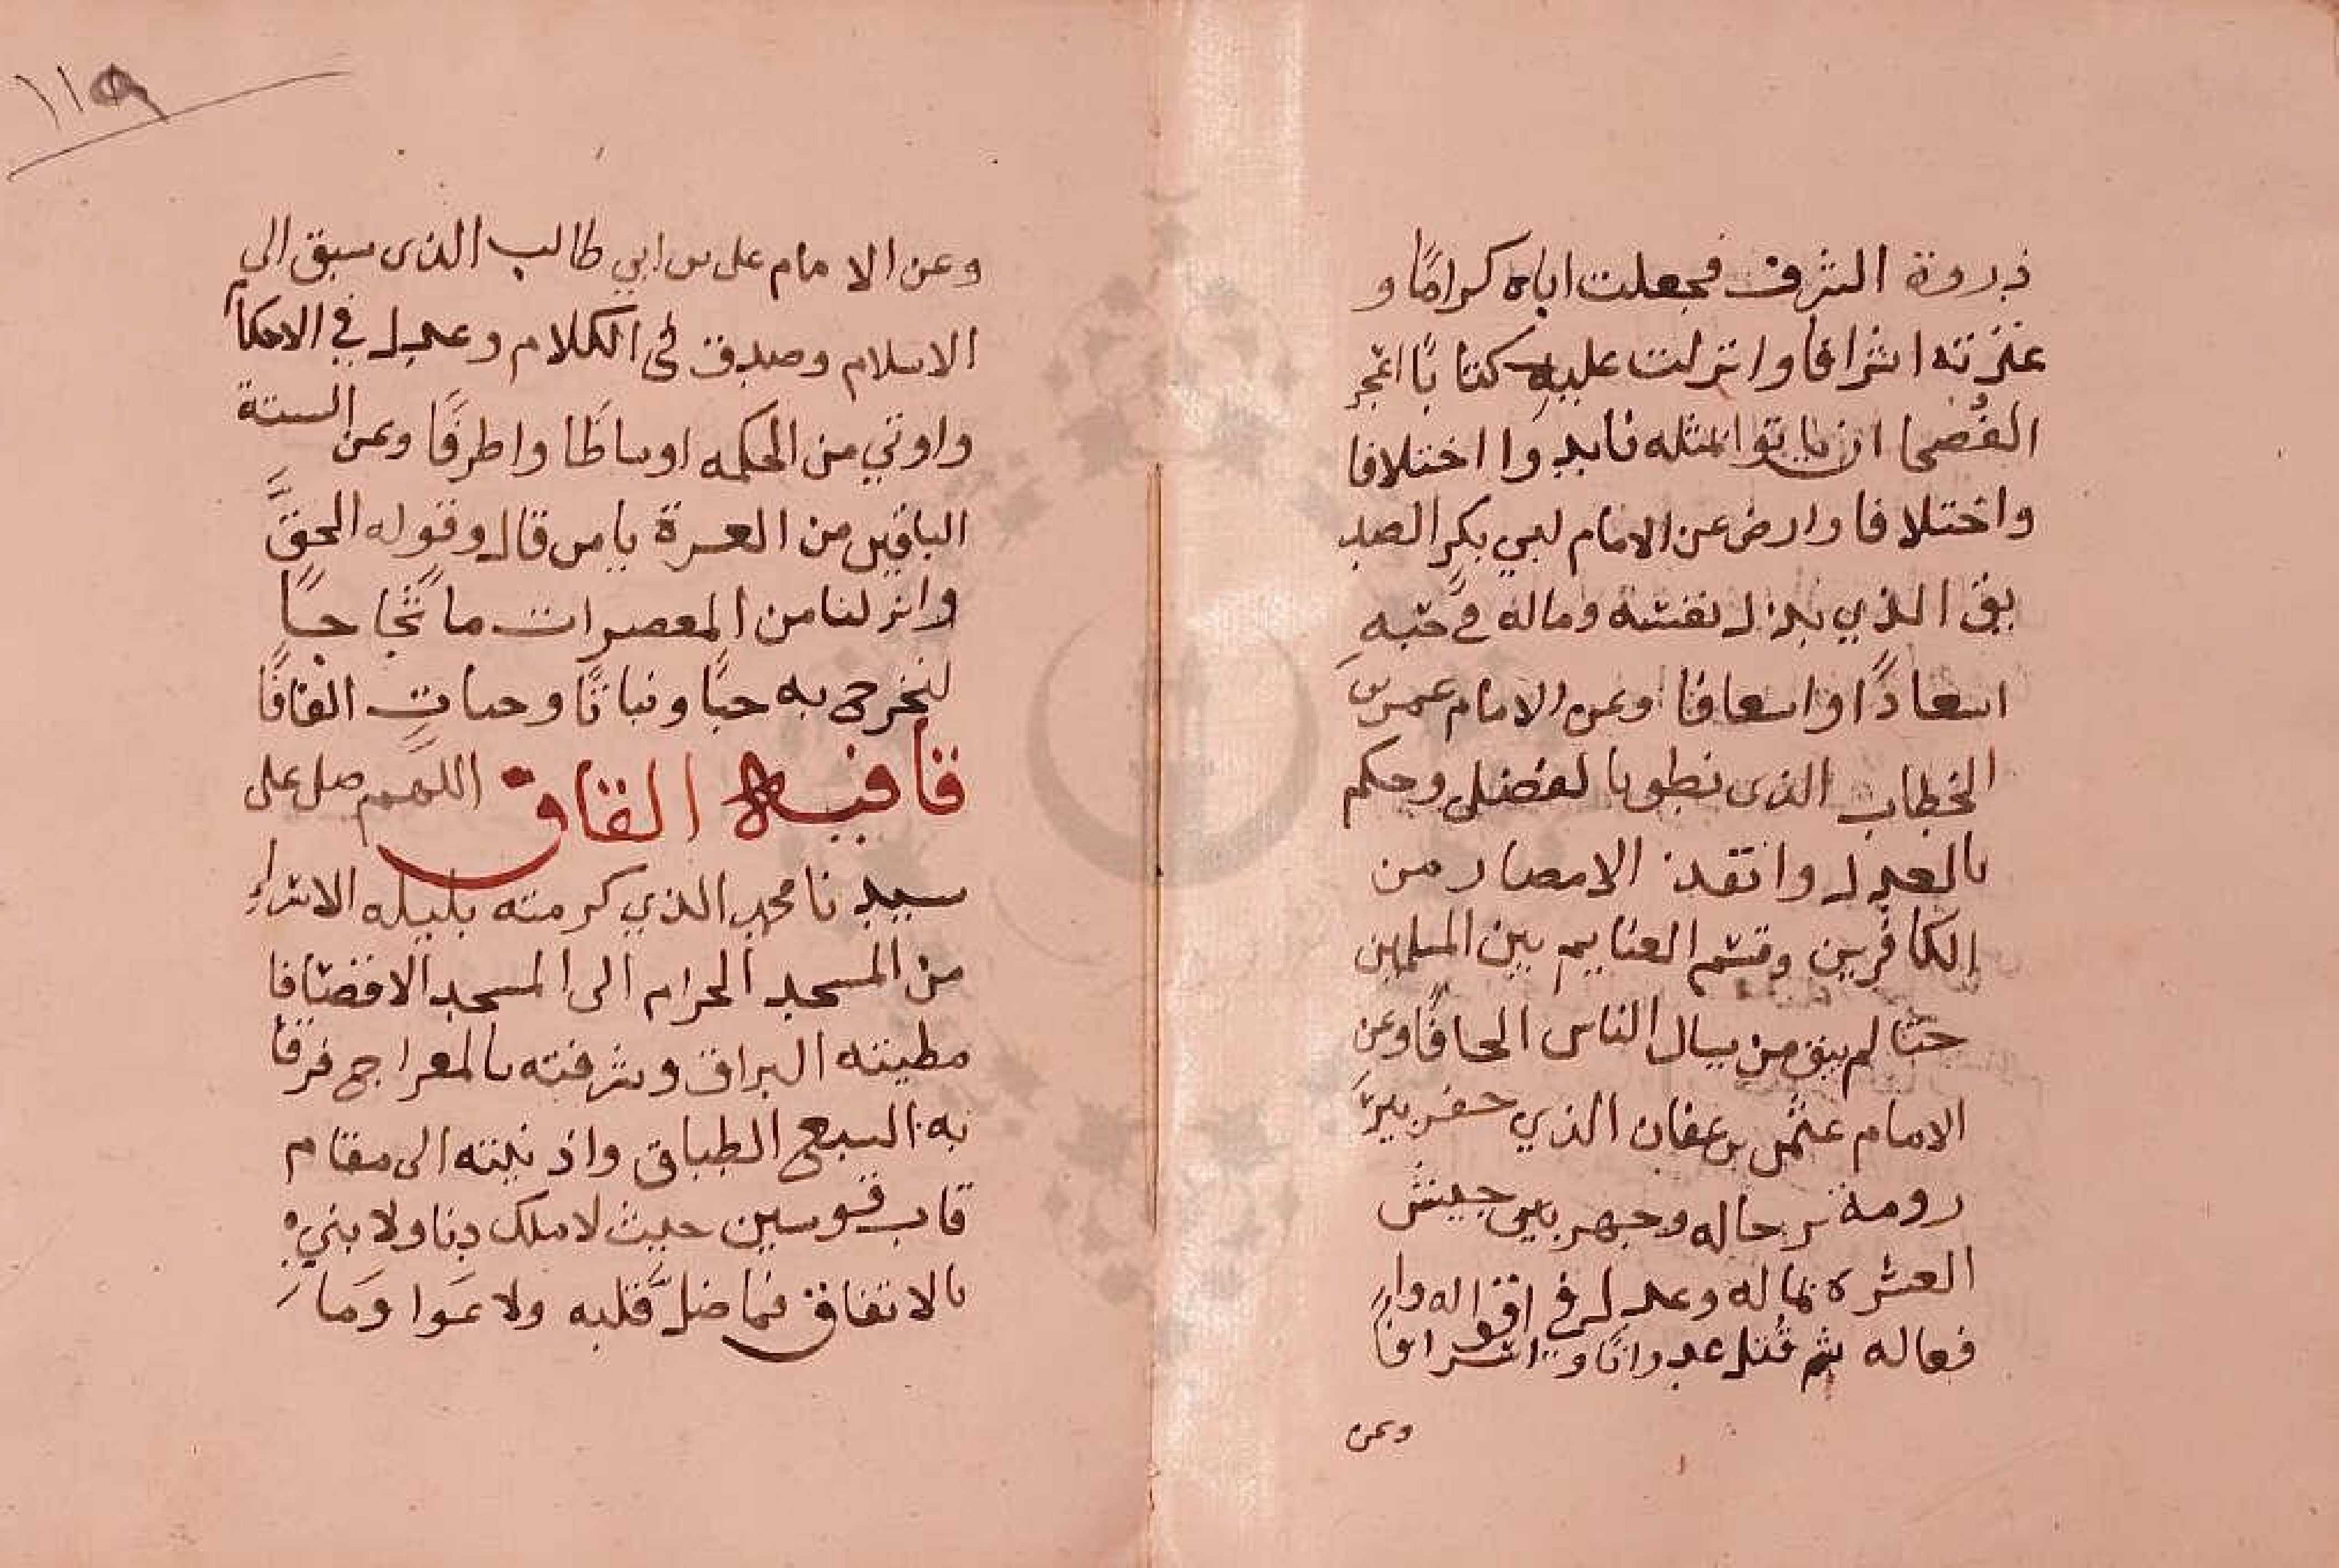 ذروة الشرف فجعلت اباه كرامًا و
عنزته اشرافا وانزلت عليه كتابًا اعجز
الفُصحا ان ياتوا بمثله فابدوا اختلافا
واختلافا وارض عن الامام ابي بكرٍ الصد
يق الذي بذل نفسه وماله في حبّه
اسعادًا واسعافا وعن الامام عمر بن
الخطاب الذى نطق با لفضل وحكم
بالعدل وانقذ الامصار من
الكافرين وقسّم الغنايم بين المسلمين
حتا لم يبق من يسال الناس الحافًا وعن
الامام عثمن بن عفان الذي حفر بيرَ
رومة برحاله وجهز جيش
العسرة بماله وعدل في اقواله وا
فعاله ثم قُتل عدوانًا واسرافًا
وعن
١١٩
وعن الامام على بن ابي طالب الذى سبق الى
الاسلام وصدق فى الكلام وعدل في الاحكا
واوتي من الحكمه اوساطًا واطرفًا وعن الستة
الباقين من العشرة يا من قال وقوله الحقَّ
وانزلنا من المعصرات ما ثجّاجًا
لنخرج به حبًا ونباتًا وجناتٍ الفافًا
قافية القاف اللهم صل على
سيدنا محمد الذي كرمته بليله الاسراءِ
من المسجد الحرام الى المسجد الاقصا فا
مطيته البراق وشرفته بالمعراج فرقا
به السبع الطباق واذنيته الى مقام
قاب قوسين حيث لا ملك دنا ولا بنيءٍ
بالاتفاق فما ضلّ قلبه ولا غوا ومَا